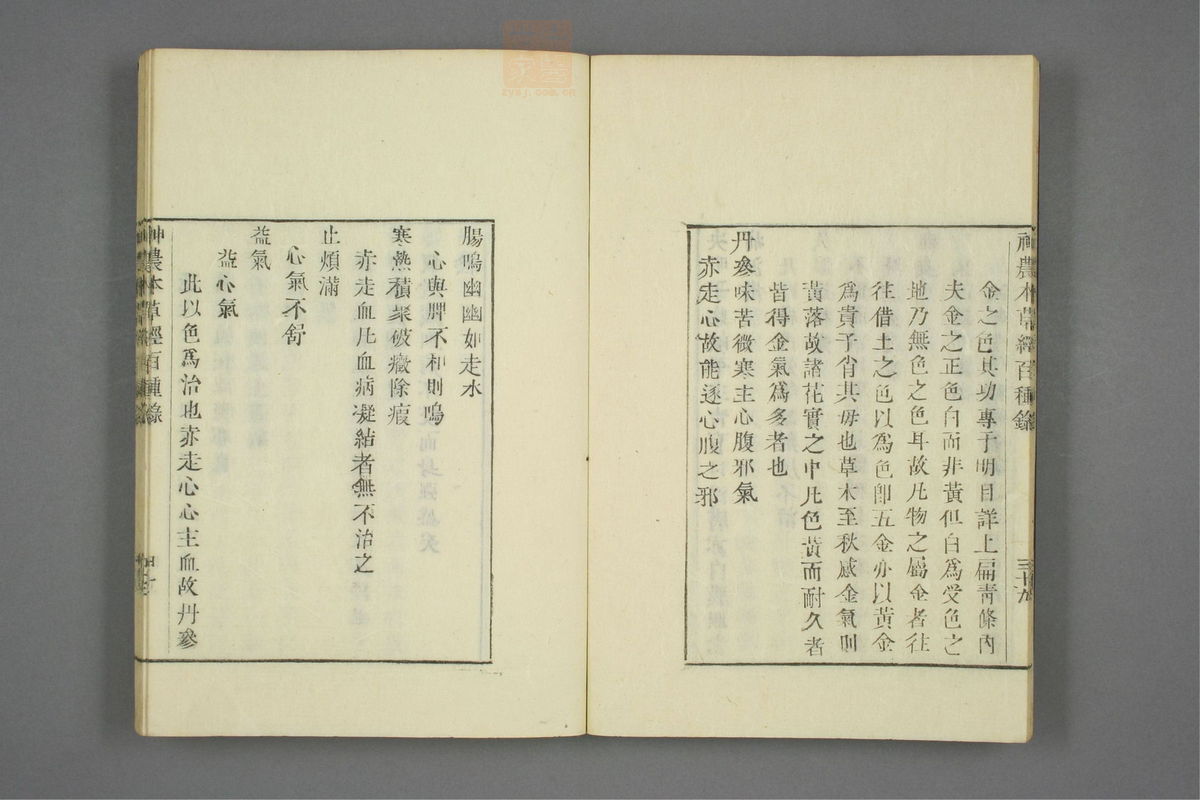 神農本草經百種錄
三十九
金之色其功專于明目詳上扁青條內
夫金之正色白而非黃但白爲受色之
地乃無色之色耳故凡物之屬金者往
往借土之色以爲色卽五金亦以黃金
爲貴子肖其母也草木至秋感金氣則
黃落故諸花實之中凡色黃而耐久者
皆得金氣爲多者也
丹參味苦微寒主心腹邪氣
赤走心故能逐心腹之邪
腸鳴幽幽如走水
心與脾不和則鳴
寒熱積聚破癥除瘕
赤走血凡血病凝結者無不治之
止煩滿
心氣不舒
益氣
益心氣
此以色爲治也赤走心心主血故丹參
神農本草經百種錄
zysj.com.cn